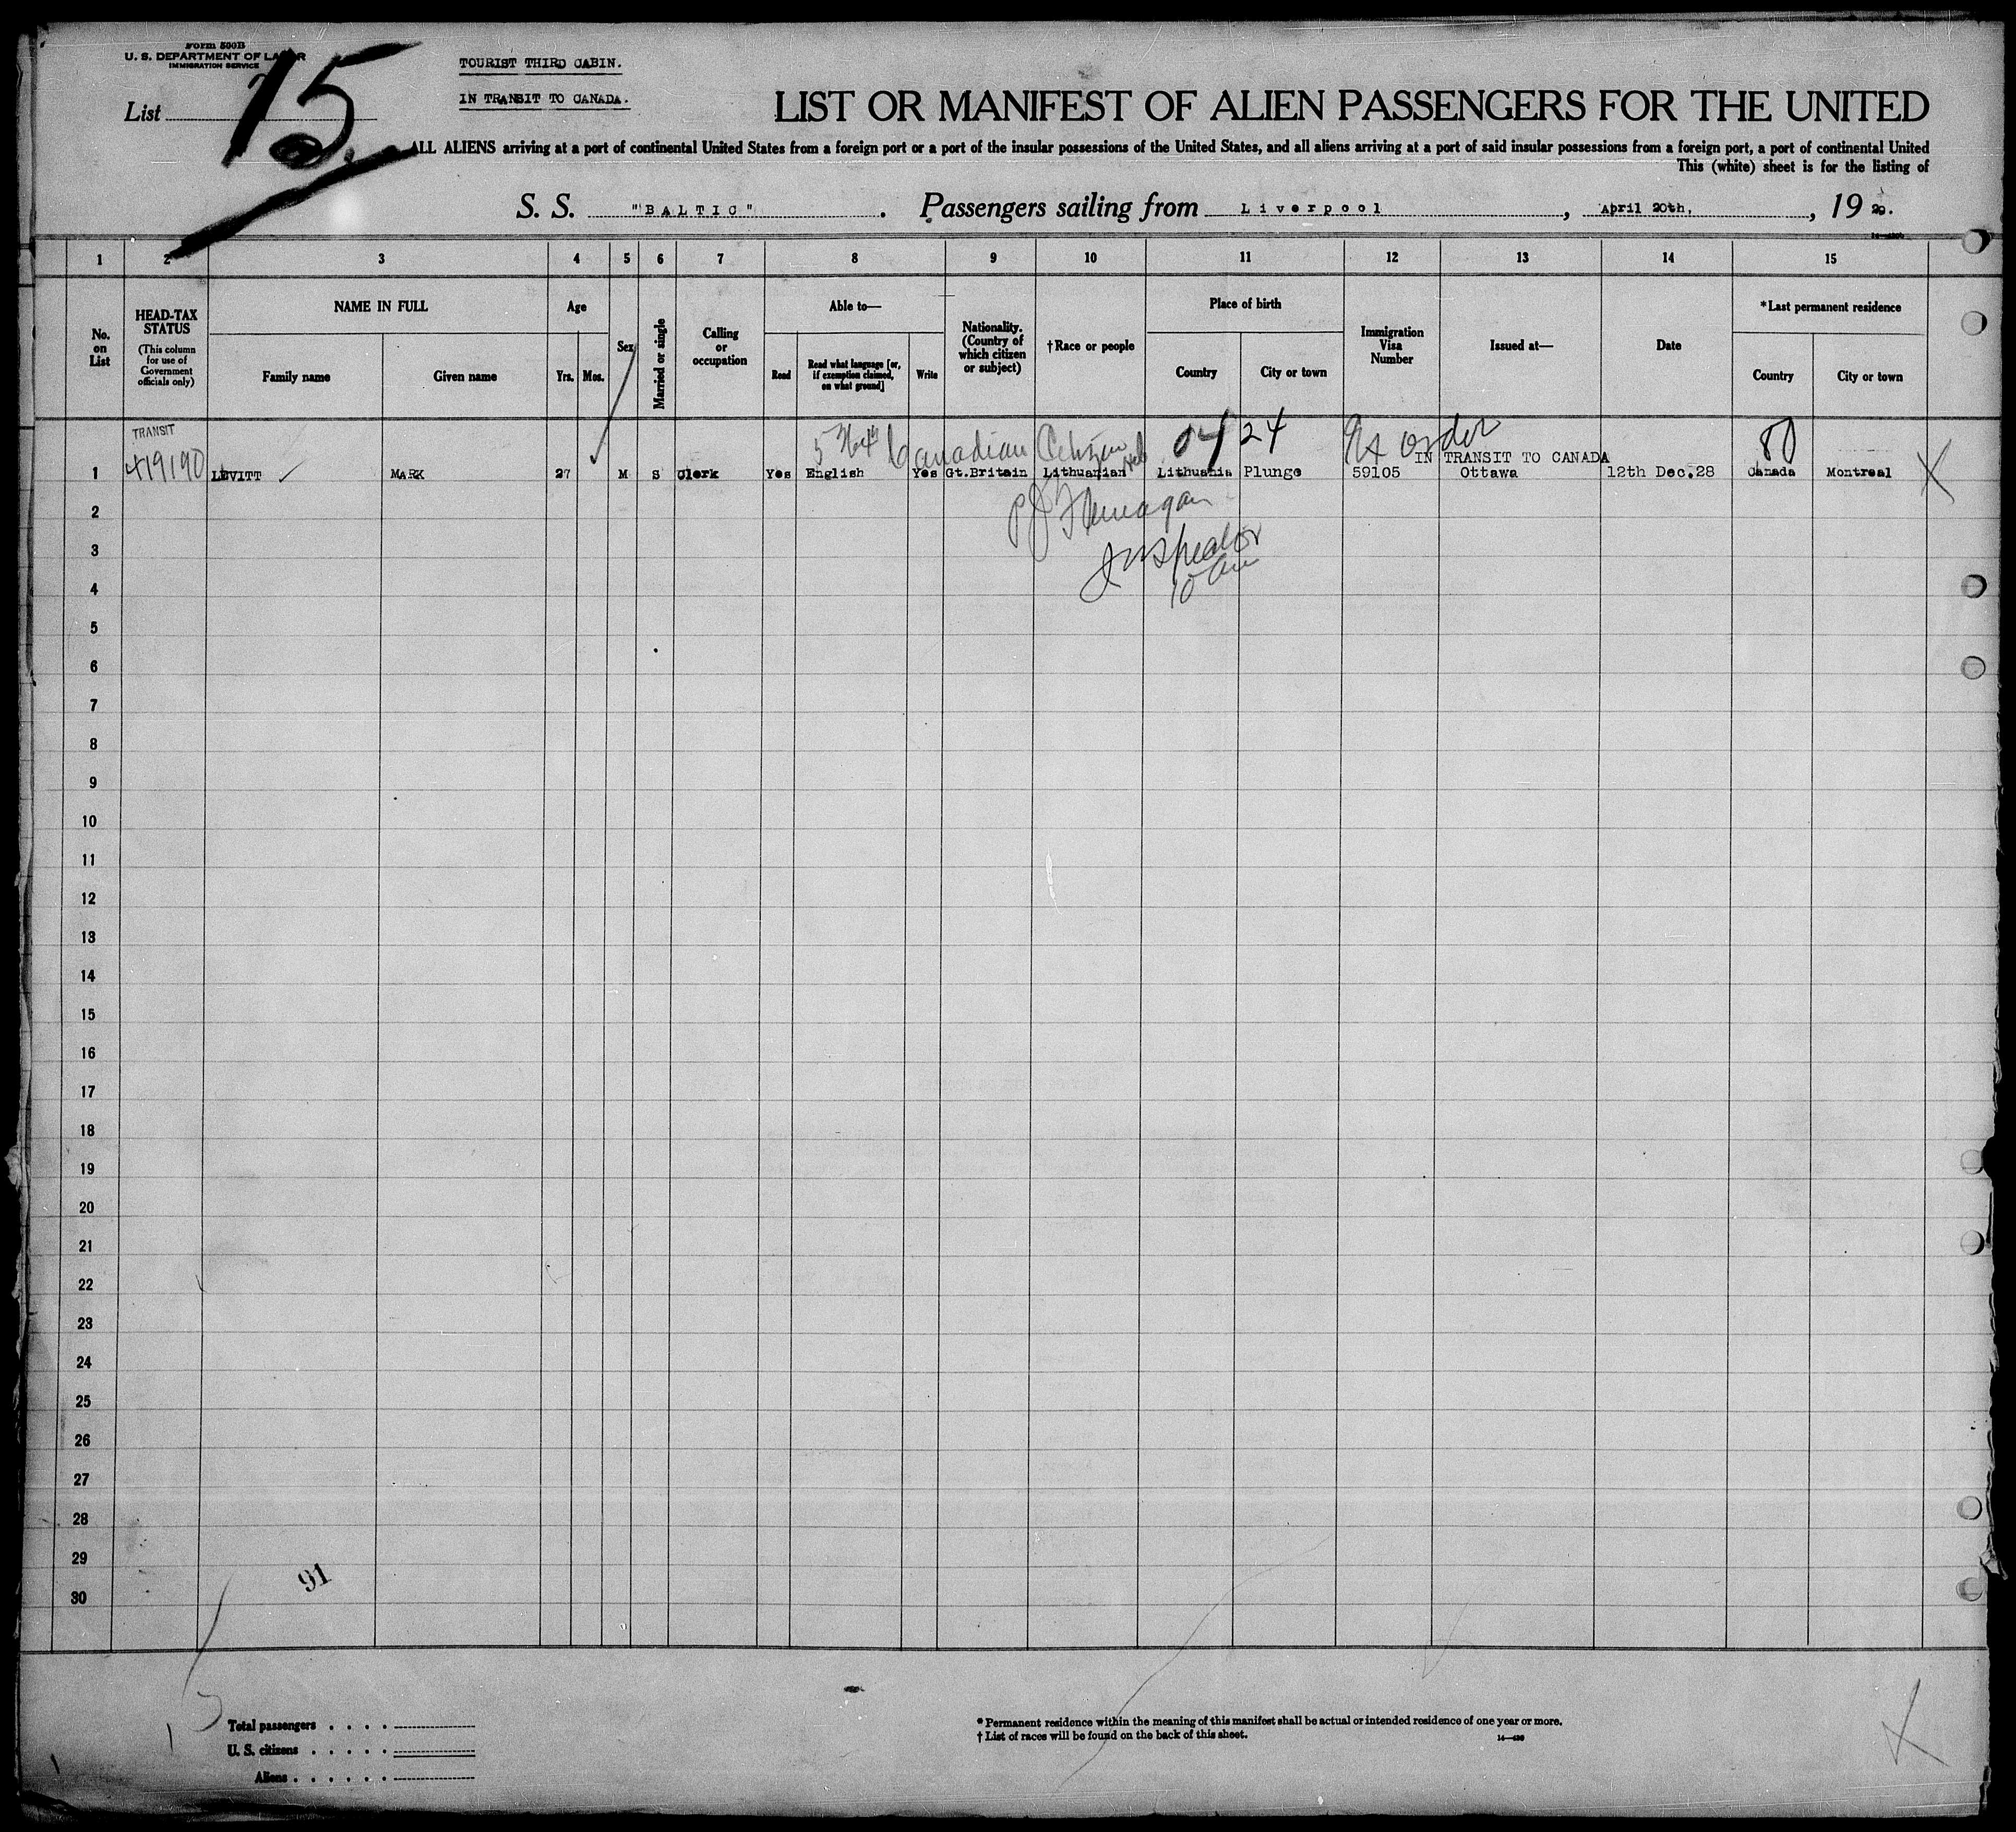 Form 500B
U. S. DEPARTMENT OF LABOR
IMMIGRATION SERVICE
TOURIST THIRD CABIN.
IN TRANSIT TO CANADA.
List 15
LIST OR MANIFEST OF ALIEN PASSENGERS FOR THE UNITED
ALL ALIENS arriving at a port of continental United States from a foreign port or a port of the insular possessions of the United States, and all aliens arriving at a port of said insular possessions from a foreign port, a port of continental United
This (white) sheet is for the listing of
S. S. "BALTIC". Passengers sailing from Liverpool, April 20th, 19 29.
1 2 3 4 5 6 7 8 9 10 11 12 13 14 15
No. on List
HEAD-TAX STATUS
(This column for use of Government officials only)
NAME IN FULL
Family name Given name
Age
Yrs. Mos.
Sex
Married or single
Calling or occupation
Able to—
Read
Read what language [or, if exemption claimed, on what ground]
Write
Nationality. (Country of which citizen or subject)
†Race or people
Place of birth
Country City or town
Immigration Visa Number
Issued at—
Date
*Last permanent residence
Country City or town
TRANSIT
Canadian Citizen 04 24 order 80
IN TRANSIT TO CANADA
1 LEVITT MARK 27 M S Clerk Yes English Yes Gt.Britain Lithuanian Lithuania Plunge 59105 Ottawa 12th Dec.28 Canada Montreal X
2
Flanagan
3
Inspector
4
10
5
6
7
8
9
10
11
12
13
14
15
16
17
18
19
20
21
22
23
24
25
26
27
28
29
91
30
Total passengers . . . .
U. S. citizens . . . . .
Aliens . . . . . .
* Permanent residence within the meaning of this manifest shall be actual or intended residence of one year or more.
† List of races will be found on the back of this sheet.
X